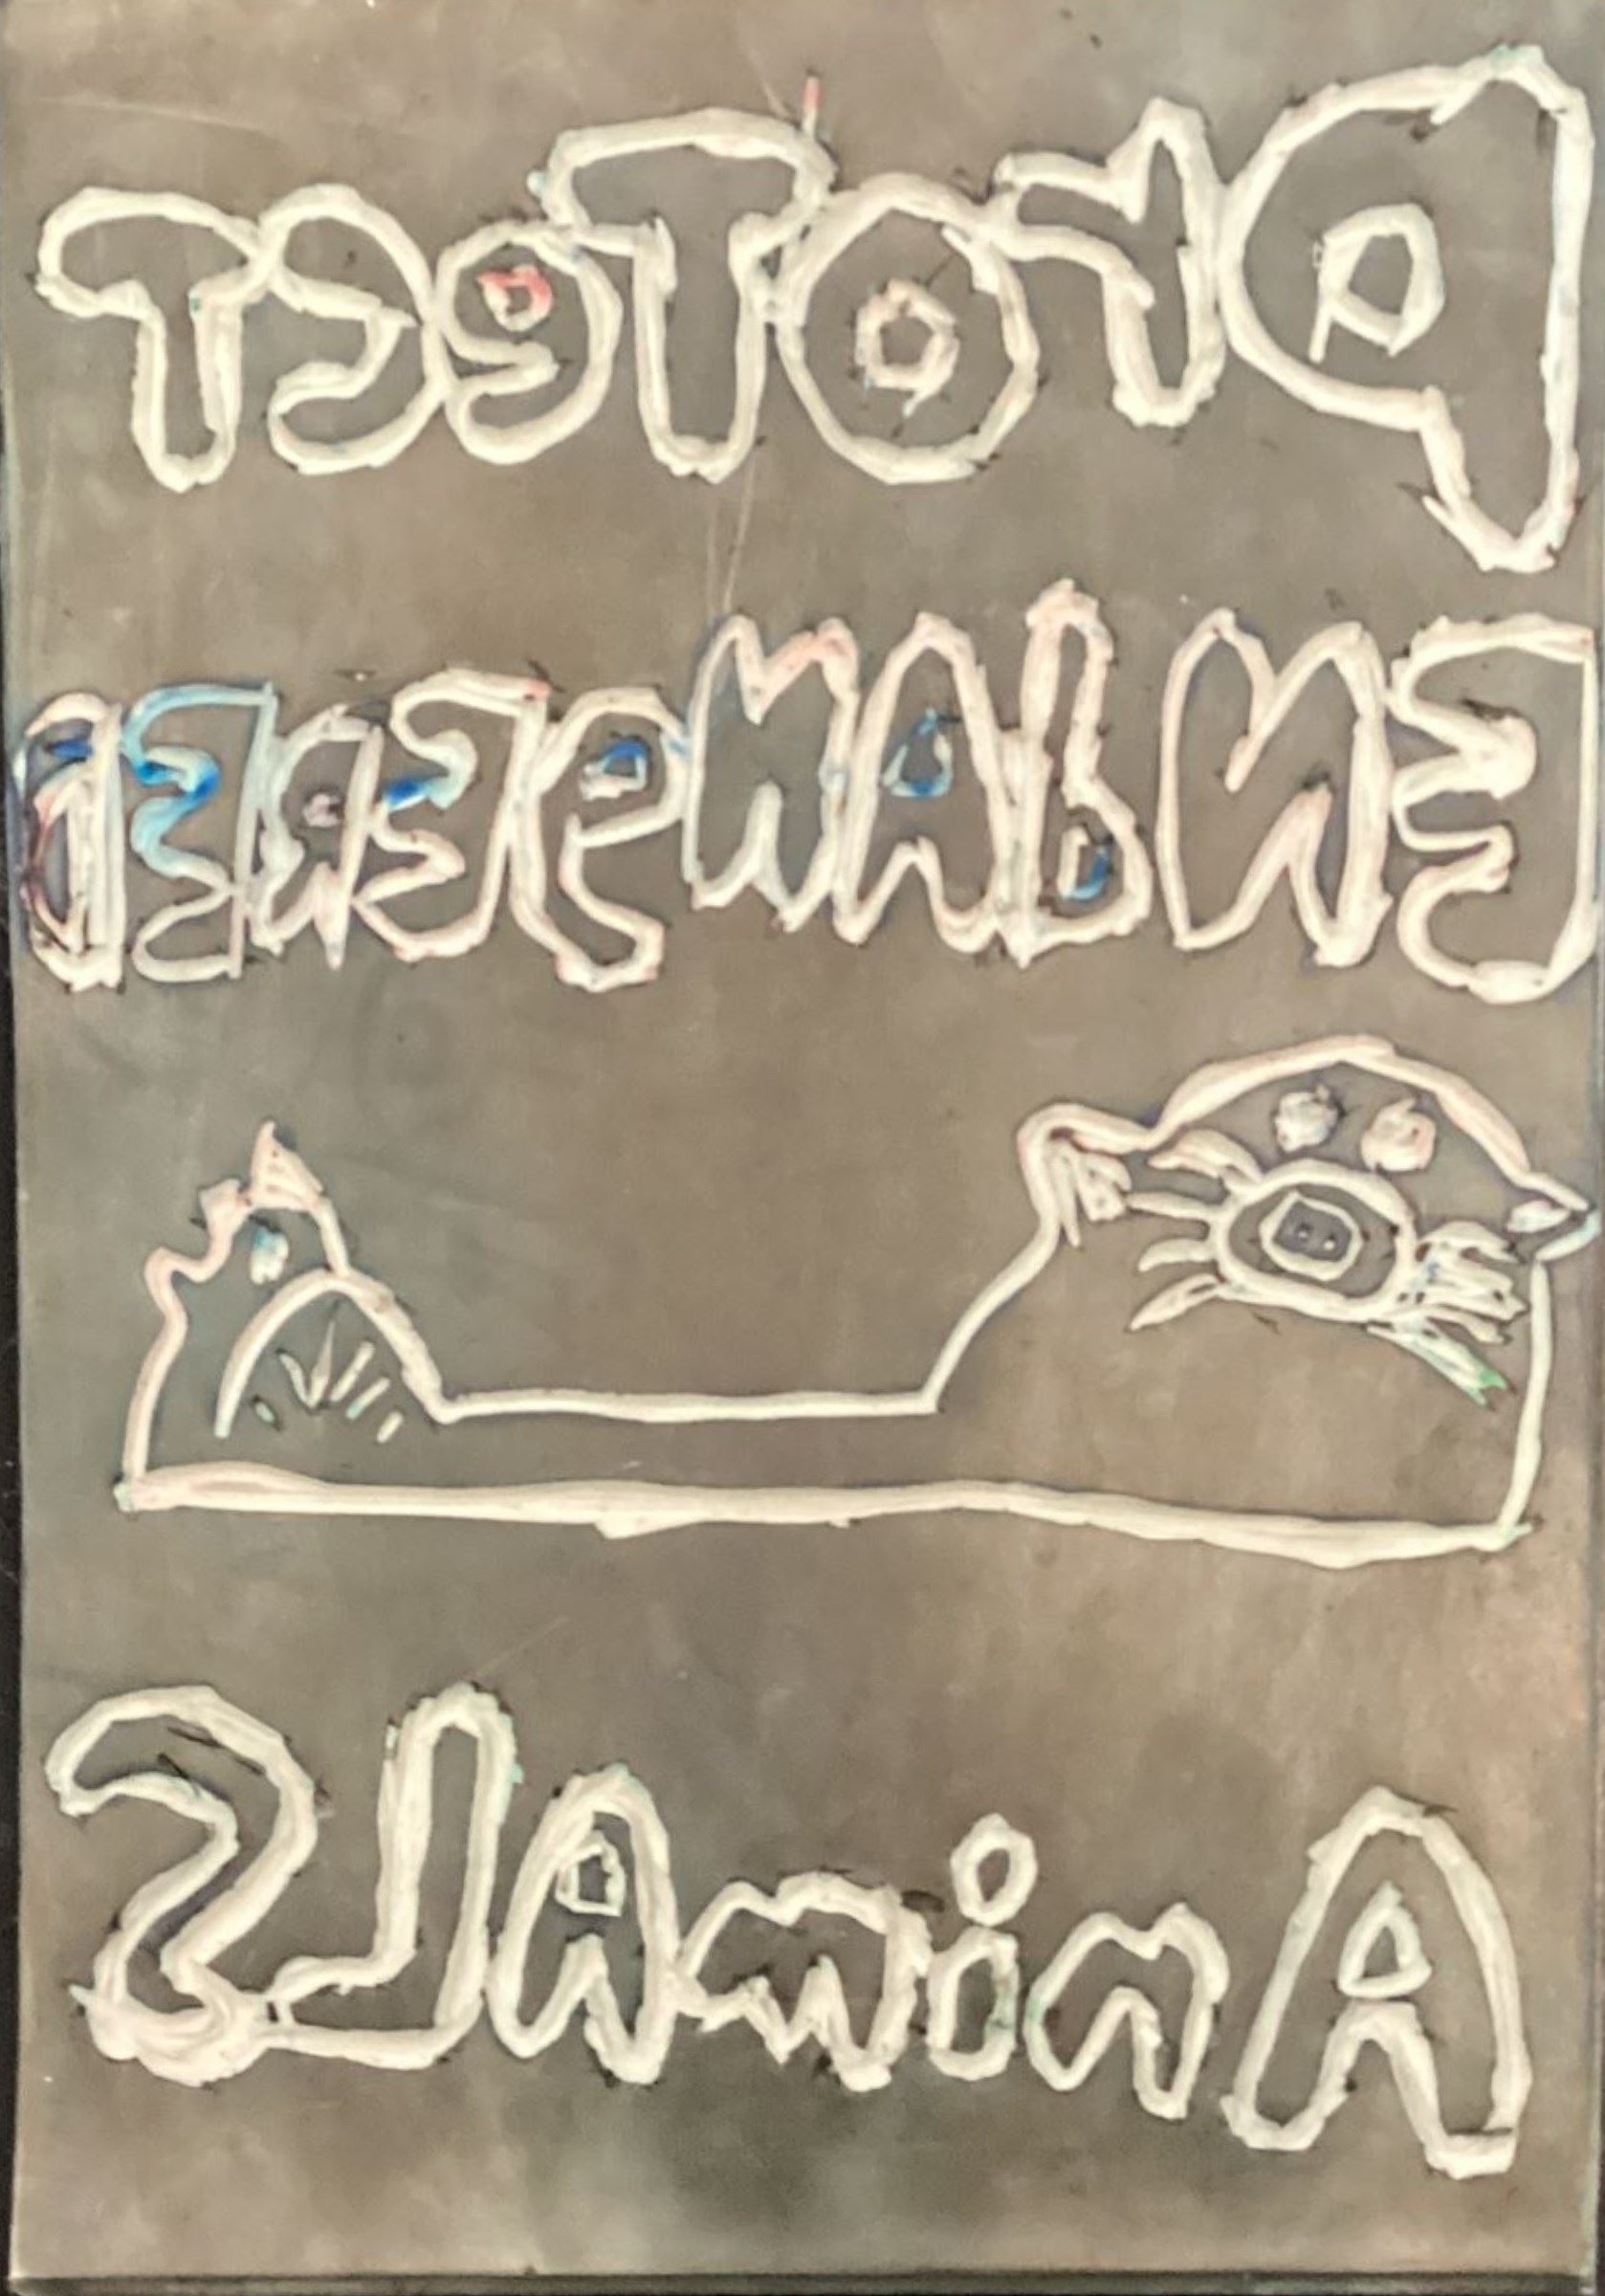 ProTecT
EndAngERED
AnimALS